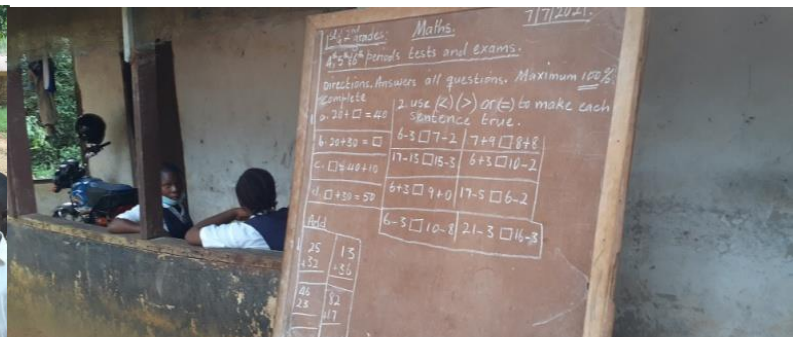 7/7/2021.
1st & 2nd grades: Maths.
4th, 5th & 6th periods tests and exams.
Directions. Answers all questions. Maximum 100%.
Complete
a. 20+□=40
b. 20+30=□
c. □=40+10
d. □+30=50
2. use (<) (>) or (=) to make each
sentence true.
6-3□7-2 7+9□8+8
17-15□15-3 6+3□10-2
6+3□9+0 17-5□6-2
6-3□10-8 21-3□16-3
Add
25 13
+32 +36
46 82
23 +17